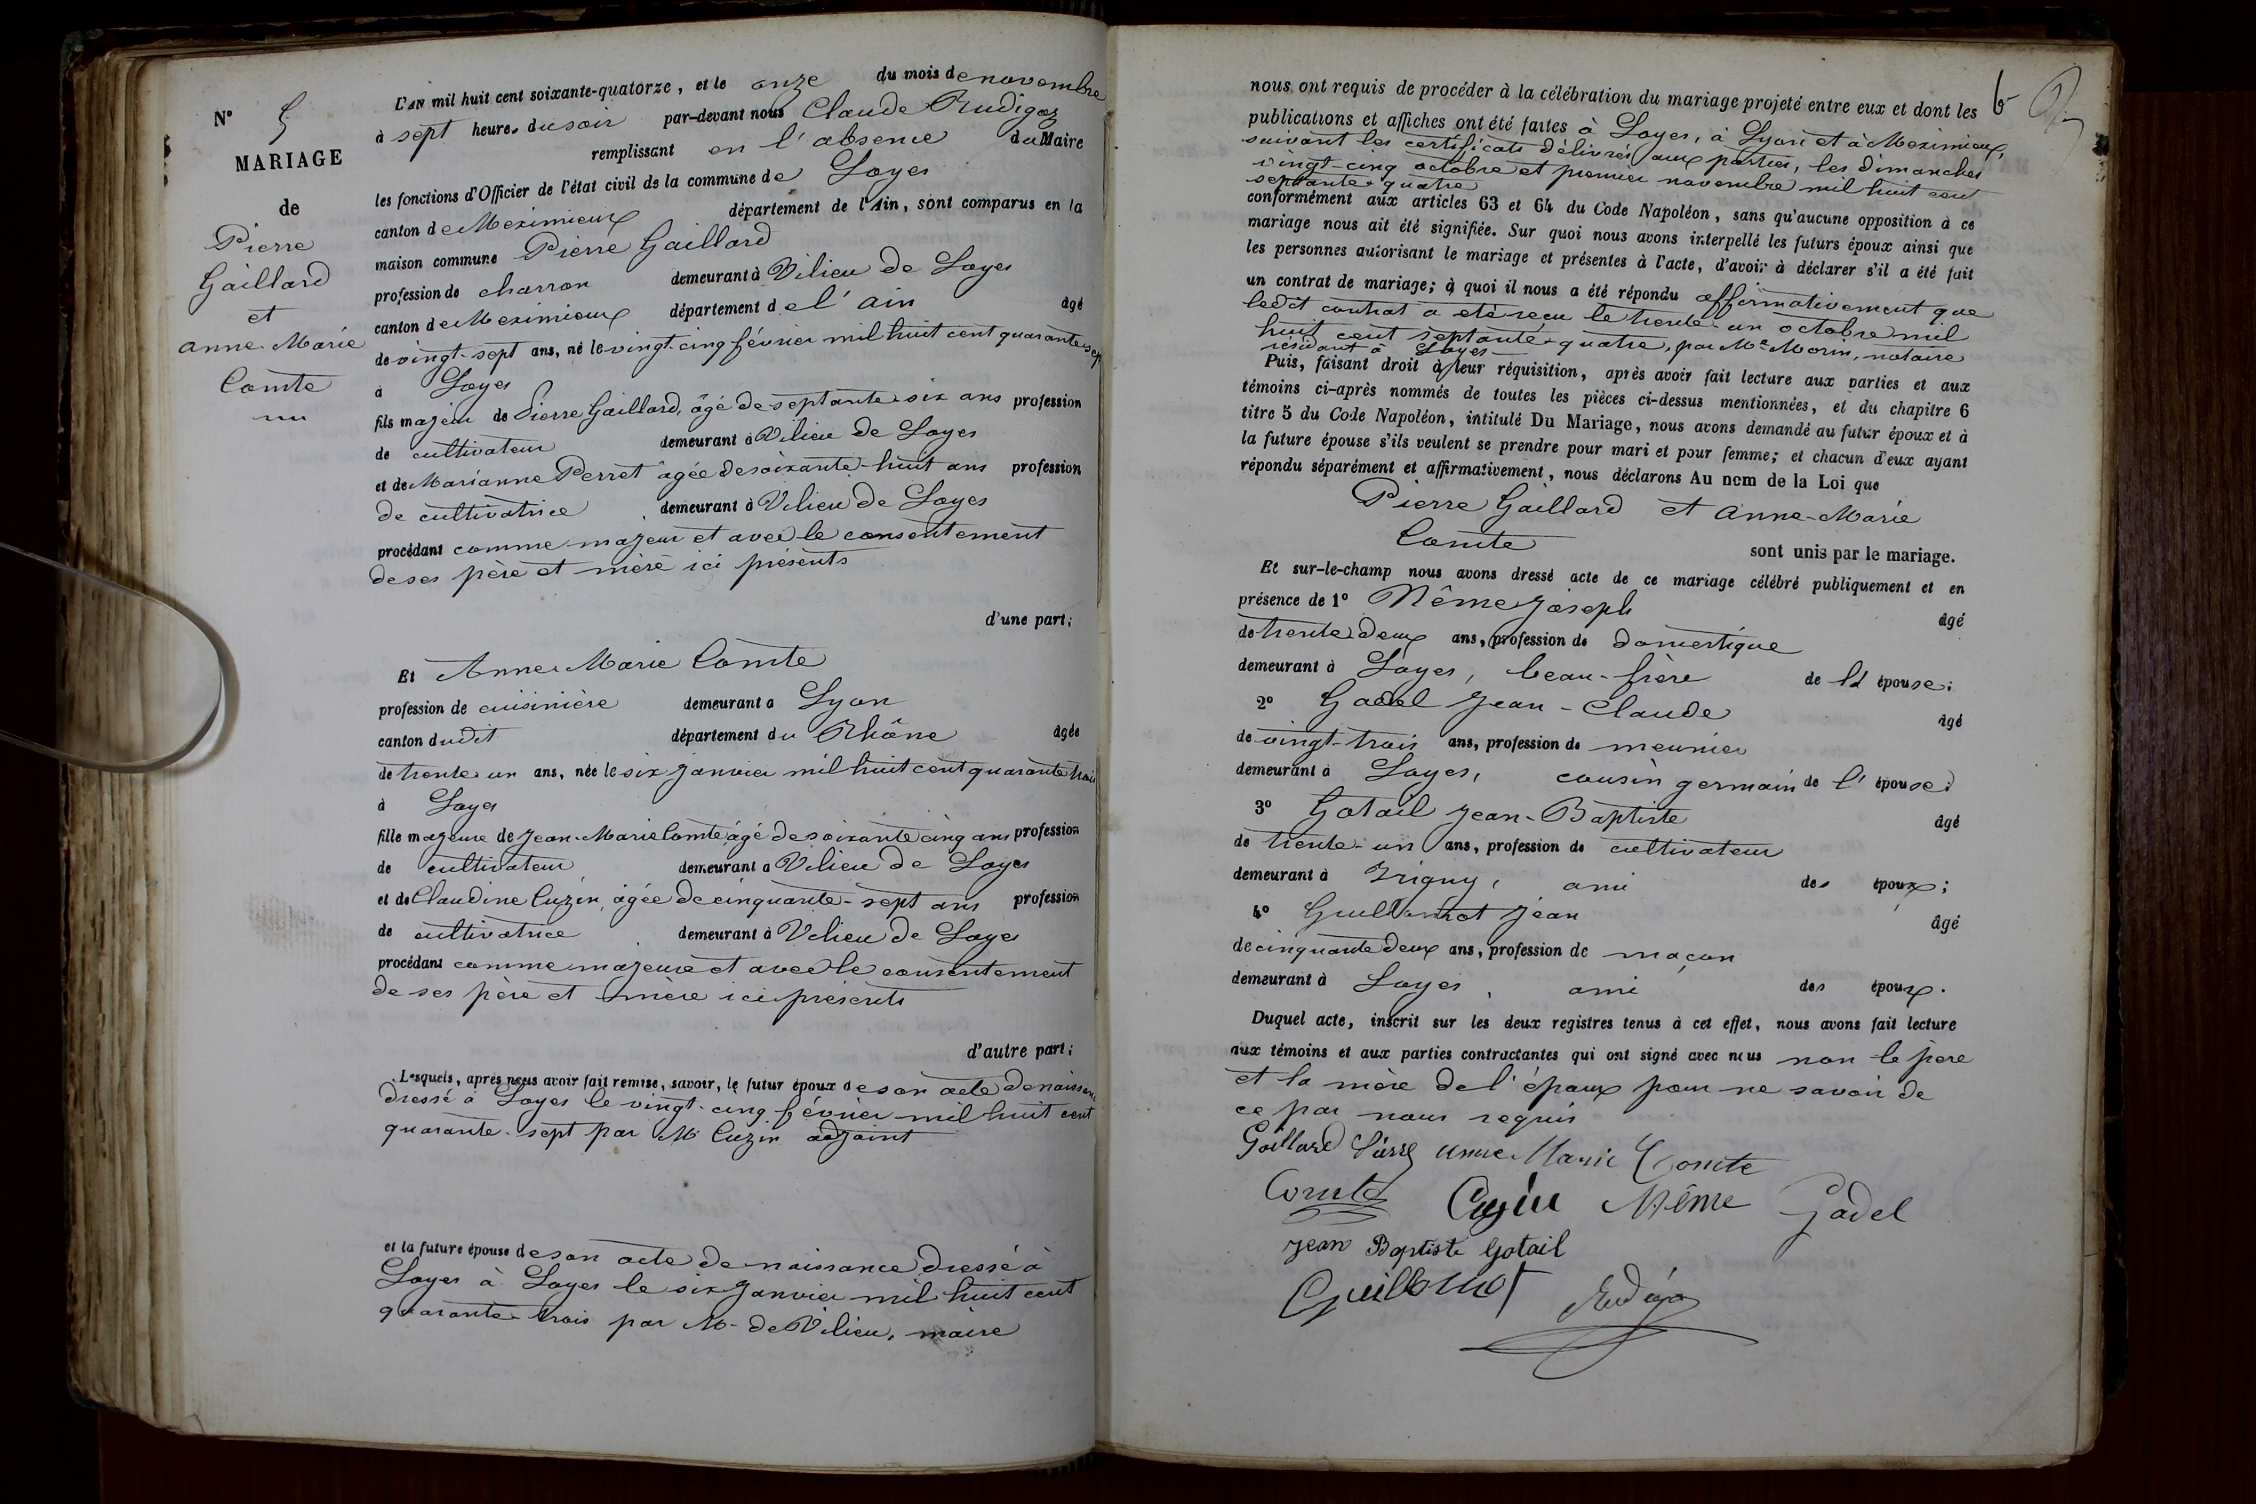 N° 5
MARIAGE
de
Pierre
Gaillard
et
anne-Marie
Comte
L'AN mil huit cent soixante-quatorze, et le onze du mois de novembre
à sept heures du soir par-devant nous Claude Rudigoz
remplissant en l'absence du Maire
les fonctions d'Officier de l'état civil de la commune de Loyes
canton de Meximieux département de l'Ain, sont comparus en la
maison commune Pierre Gaillard
profession de charron demeurant à Vilieu de Loyes
canton de Meximieux département de l'ain âgé
de vingt-sept ans, né le vingt-cinq février mil huit cent quarante sept
à Loyes
fils majeur de Pierre Gaillard, âgé de septante-six ans profession
de cultivateur demeurant à Vilieu de Loyes
et de Marianne Perret âgée de soixante-huit ans profession
de cultivatrice demeurant à Vilieu de Loyes
procédant comme majeur et avec le consentement
de ses père et mère ici présents
d'une part;
Et Anne-Marie Comte
profession de cuisinière demeurant a Lyon
canton dudit département du Rhône âgée
de trente un ans, née le six janvier mil huit cent quarante trois
à Loyes
fille majeure de Jean-Marie Comte âgé de soixante cinq ans profession
de cultivateur demeurant a Vilieu de Loyes
et de Claudine Cuzin, âgée de cinquante-sept ans profession
de cultivatrice demeurant à Vilieu de Loyes
procédant comme majeure et avec le consentement
de ses père et mère ici présents
d'autre part;
Lesquels, après nous avoir fait remise, savoir, le futur époux de son acte de naissance
dressé à Loyes le vingt-cinq février mil huit cent
quarante-sept par M Cuzin adjoint
et la future épouse de son acte de naissance dressé à
Loyes à Loyes le six janvier mil huit cent
quarante-trois par M. de Vilieu, maire
6
nous ont requis de procéder à la célébration du mariage projeté entre eux et dont les
publications et affiches ont été faites à Loyes, à Lyon et à Meximieux,
suivant les certificats délivrés aux parties, les dimanches
vingt-cinq octobre et premier novembre mil huit cent
septante-quatre
conformément aux articles 63 et 64 du Code Napoléon, sans qu'aucune opposition à ce
mariage nous ait été signifiée. Sur quoi nous avons interpellé les futurs époux ainsi que
les personnes autorisant le mariage et présentes à l'acte, d'avoir à déclarer s'il a été fait
un contrat de mariage; à quoi il nous a été répondu affirmativement que
ledit contrat a été reçu le trente-un octobre mil
huit cent septante-quatre, par Me Morin, notaire
résidant à Loyes
Puis, faisant droit à leur réquisition, après avoir fait lecture aux parties et aux
témoins ci-après nommés de toutes les pièces ci-dessus mentionnées, et du chapitre 6
titre 5 du Code Napoléon, intitulé Du Mariage, nous avons demandé au futur époux et à
la future épouse s'ils veulent se prendre pour mari et pour femme; et chacun d'eux ayant
répondu séparément et affirmativement, nous déclarons Au nom de la Loi que
Pierre Gaillard et Anne-Marie
Comte sont unis par le mariage.
Et sur-le-champ nous avons dressé acte de ce mariage célébré publiquement et en
présence de 1° Même Joseph âgé
de trente deux ans, profession de domestique
demeurant à Loyes, beau-frère de l' épouse;
2° Gadel Jean-Claude âgé
de vingt-trois ans, profession de meunier
demeurant à Loyes, cousin germain de l' épouse;
3° Gotail Jean-Baptiste âgé
de trente-un ans, profession de cultivateur
demeurant à Irigny, ami des époux;
4° Guillermot Jean âgé
de cinquante deux ans, profession de maçon
demeurant à Loyes, ami des époux.
Duquel acte, inscrit sur les deux registres tenus à cet effet, nous avons fait lecture
aux témoins et aux parties contractantes qui ont signé avec nous non le père
et la mère de l'époux pour ne savoir de
ce par nous requis
Gaillard Pierre Anne Marie Comte
Comte Cuzin Même Gadel
Jean Baptiste Gotail
Guillermot Rudigoz